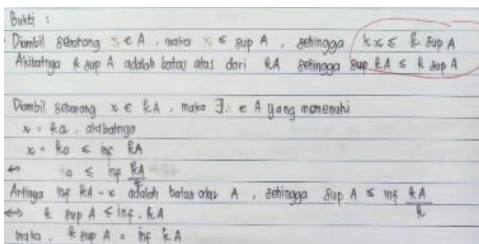 Bukti :
Diambil sebarang x ∈ A, maka x ≤ sup A, sehingga k x ≤ k sup A
Akibatnya k sup A adalah batas atas dari kA sehingga sup kA ≤ k sup A
Diambil sebarang x ∈ kA, maka ∃ ∈ A yang memenuhi
x = ka, akibatnya
x = ka ≤ inf kA
↔ a ≤ inf kA / k
Artinya inf kA adalah batas atas A, sehingga sup A ≤ inf kA / k
↔ k sup A ≤ inf. kA
maka, k sup A = inf kA